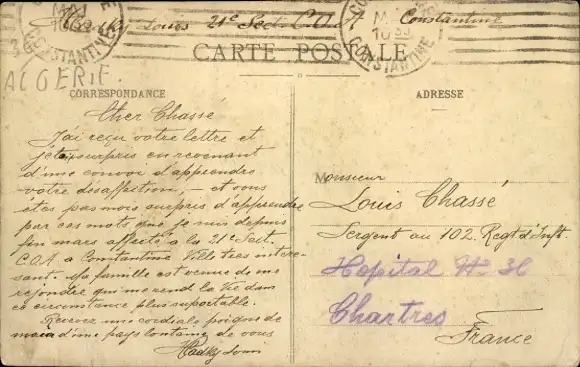 Hadky Louis 21e Sect. C.O.A Constantine
CONSTANTINE
CONSTANTINE
CARTE POSTALE
ALGERIE
CORRESPONDANCE
ADRESSE
Cher Chassé
J'ai reçu votre lettre et
j'étais surpris en revenant
d'une convoi d'apprendre
votre désaffection, — et vous
êtes pas moins surpris d'apprendre
par ces mots que je suis depuis
fin mars affecté a la 21e Sect.
C.O.A. a Constantine Ville très intére-
sant. Ma famille est venue de me
rejondre qui me rend la Vie dans
ce circumstance plus suportable.
Recevez une cordiale poignée de
main d'une pays lontaine de vous
Hadky Louis
Monsieur
Louis Chassé
Sergent au 102. Regt d'Inft.
Hopital No 36
Chartres
France